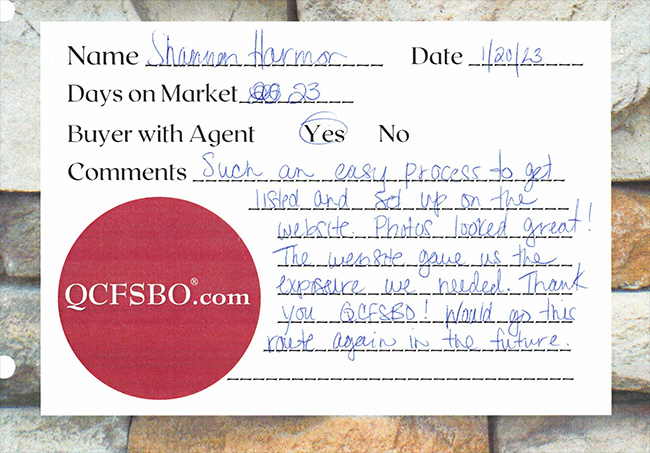 Name Shannon Harmon Date 1/20/23
Days on Market 23
Buyer with Agent Yes No
Comments Such an easy process to get
listed and set up on the
website. Photos looked great!
The website gave us the
exposure we needed. Thank
you QCFSBO! Would go this
route again in the future.
QCFSBO®.com